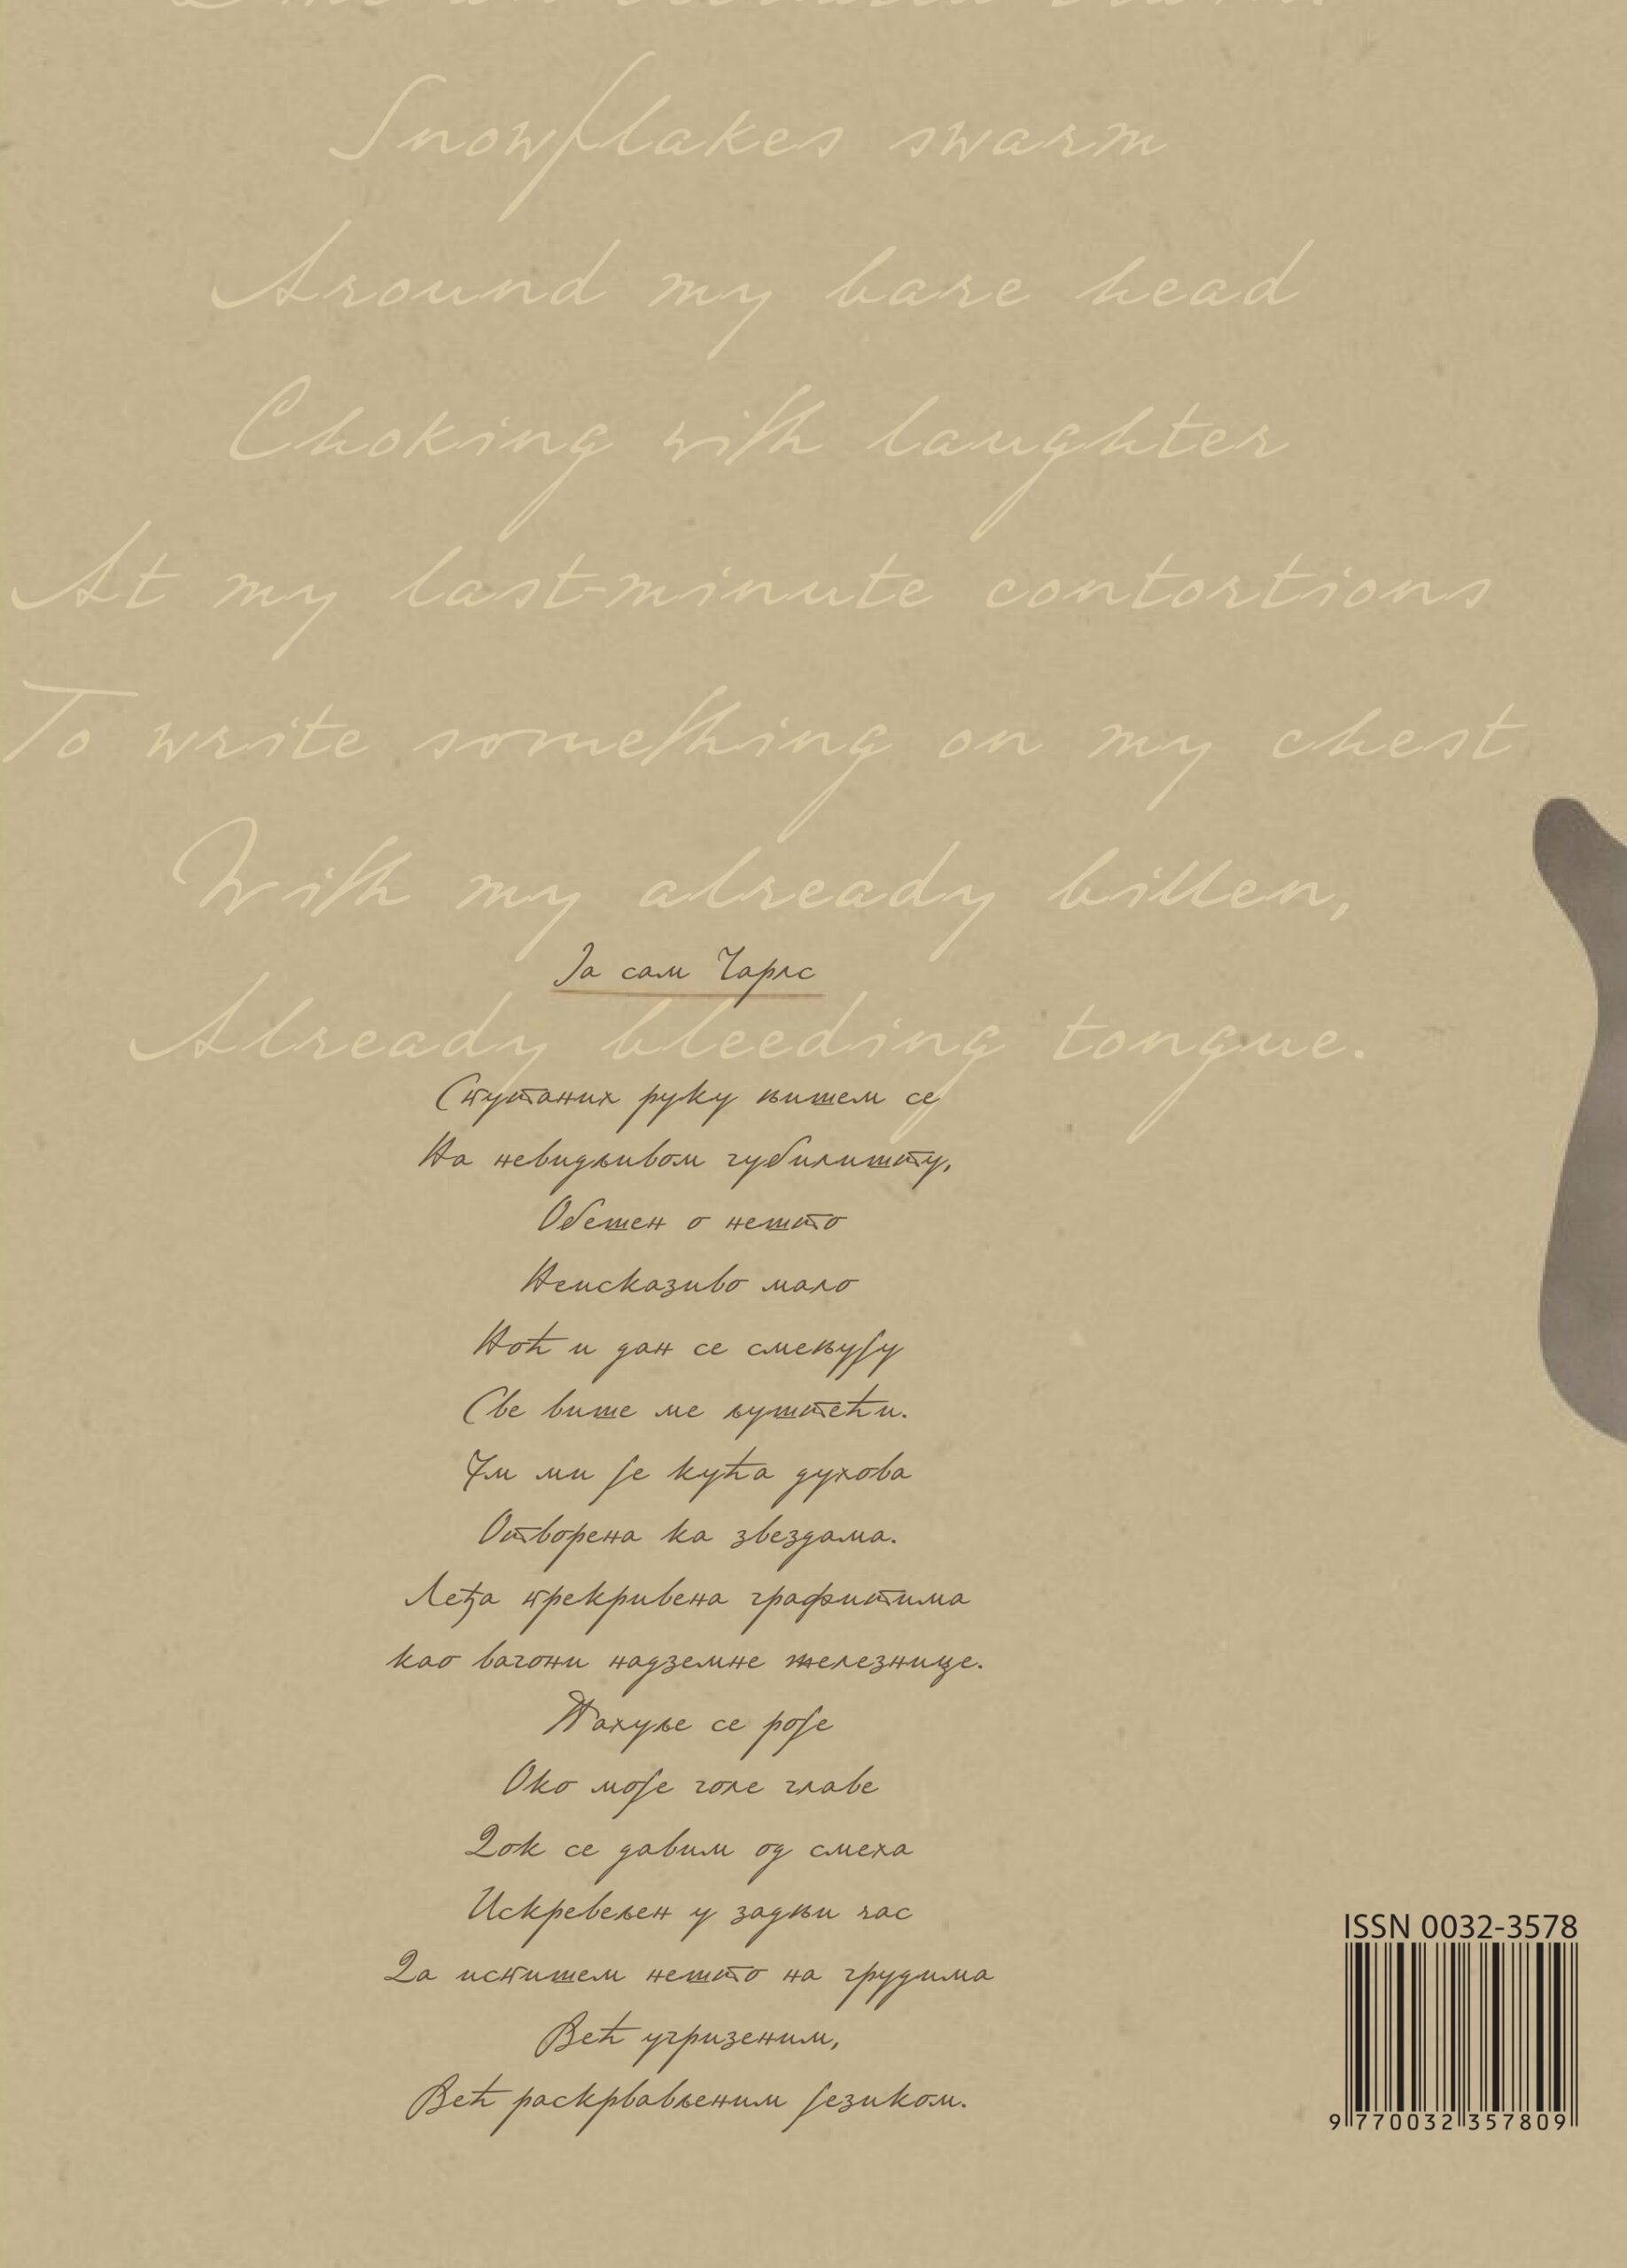 Snowflakes swarm
Around my bare head
Choking with laughter
At my last-minute contortions
To write something on my chest
With my already bitten,
Ја сам Чарлс
Already bleeding tongue.
Спутаних руку њишем се
На невидљивом губилишту,
Обешен о нешто
Неисказиво мало
Ноћ и дан се смењују
Све више ме љуштећи.
Ум ми је кућа духова
Отворена ка звездама.
Леђа прекривена графитима
као вагони надземне железнице.
Пахуље се роје
Око моје голе главе
Док се давим од смеха
Искревељен у задњи час
Да испишем нешто на грудима
Већ угризеним,
Већ раскрвављеним језиком.
ISSN 0032-3578
9 770032 357809